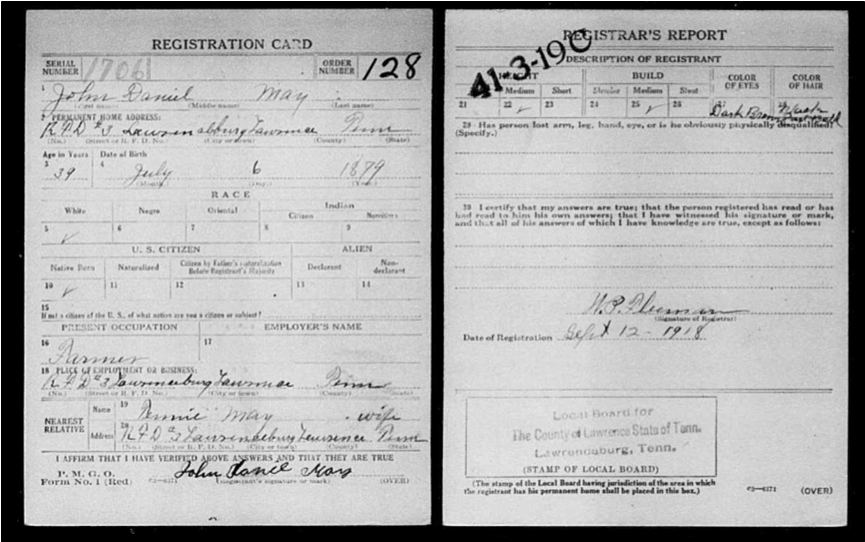 REGISTRATION CARD
SERIAL NUMBER 1706 ORDER NUMBER 128
1 John Daniel May
(First name) (Middle name) (Last name)
2 PERMANENT HOME ADDRESS:
R.F.D #3 Lawrenceburg Lawrence Tenn
(No.) (Street or R. F. D. No.) (City or town) (County) (State)
Age in Years Date of Birth
3 39 4 July 6 1879
(Month.) (Day.) (Year.)
RACE
White Negro Oriental Indian
Citizen Noncitizen
5 ✓ 6 7 8 9
U. S. CITIZEN ALIEN
Native Born Naturalized Citizen by Father's Naturalization Before Registrant's Majority Declarant Non-declarant
10 ✓ 11 12 13 14
15
If not a citizen of the U. S., of what nation are you a citizen or subject?
PRESENT OCCUPATION EMPLOYER'S NAME
16 Farmer 17
18 PLACE OF EMPLOYMENT OR BUSINESS:
R.F.D #3 Lawrenceburg Lawrence Tenn
(No.) (Street or R. F. D. No.) (City or town) (County) (State)
NEAREST RELATIVE Name 19 May wife
Address 20 R.F.D #3 Lawrenceburg Lawrence Tenn
(No.) (Street or R. F. D. No.) (City or town) (County) (State)
I AFFIRM THAT I HAVE VERIFIED ABOVE ANSWERS AND THAT THEY ARE TRUE
P. M. G. O.
Form No. 1 (Red) 03—6171 John Daniel May
(Registrant's signature or mark) (OVER)
REGISTRAR'S REPORT
41-3-19 C
DESCRIPTION OF REGISTRANT
HEIGHT BUILD COLOR OF EYES COLOR OF HAIR
Medium Short Slender Medium Stout
21 22 ✓ 23 24 25 ✓ 26 27 Dark Brown 28 Black
29 Has person lost arm, leg, hand, eye, or is he obviously physically disqualified?
(Specify.)
30 I certify that my answers are true; that the person registered has read or has
had read to him his own answers; that I have witnessed his signature or mark,
and that all of his answers of which I have knowledge are true, except as follows:
(Signature of Registrar)
Date of Registration Sept 12 - 1918
Local Board for
The County of Lawrence State of Tenn.
Lawrenceburg, Tenn.
(STAMP OF LOCAL BOARD)
(The stamp of the Local Board having jurisdiction of the area in which
the registrant has his permanent home shall be placed in this box.)
03—6171 (OVER)